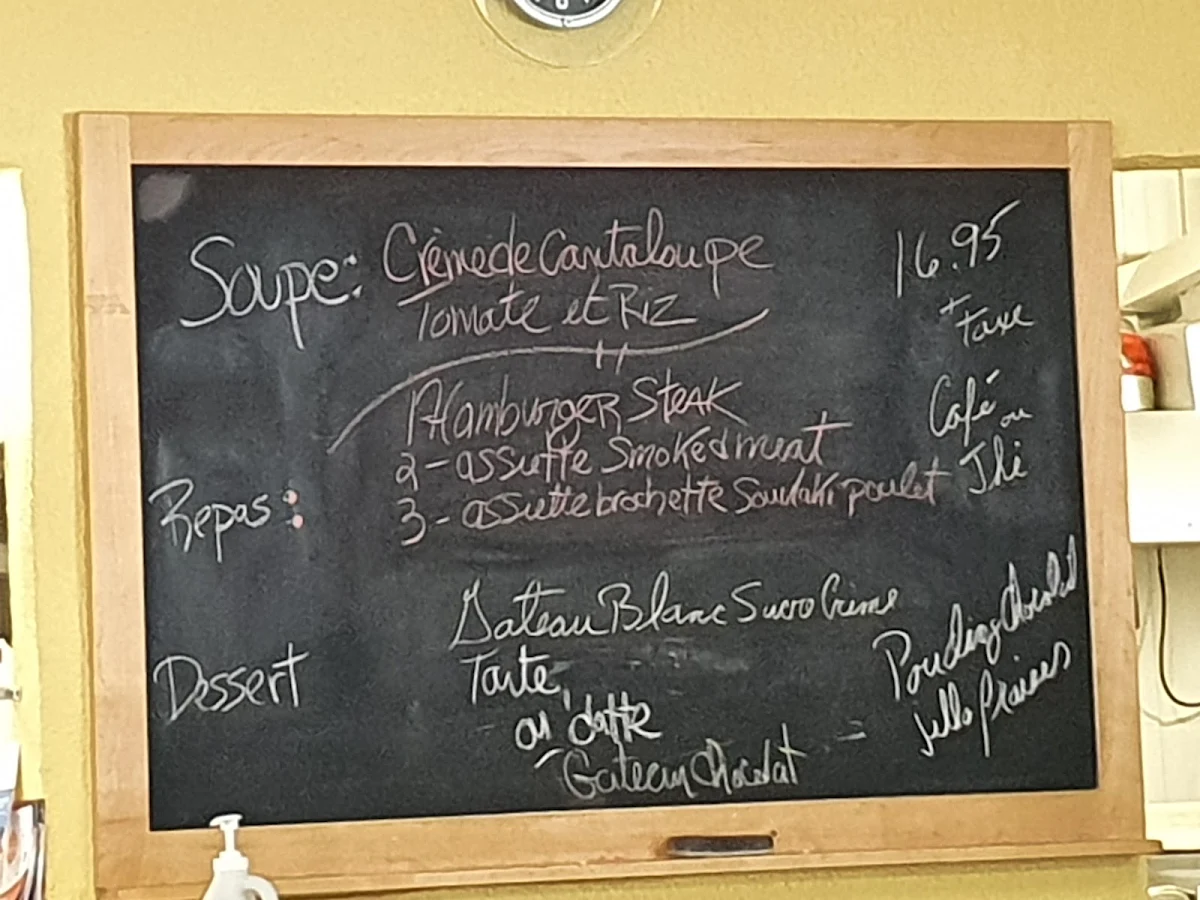 Soupe: Crème de Cantaloupe
Tomate et Riz
16.95
+ Taxe
Café ou
Thé
Repas:
1 Hamburger Steak
2 - assiette Smoked meat
3 - assiette brochette Souvlaki poulet
Dessert
Gateau Blanc Sucre Creme
Tarte
datte
Gateau Chocolat
Pouding Chocolat
jello fraises